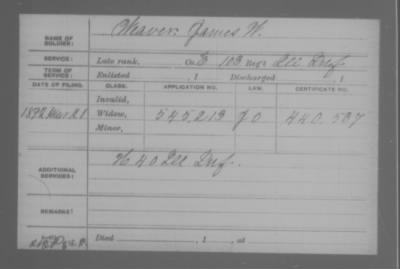 NAME OF SOLDIER: Weaver, James W.
SERVICE: Late rank, Co. 103 Reg't Ill Inf.
TERM OF SERVICE: Enlisted , 1 Discharged , 1
DATE OF FILING. CLASS. APPLICATION NO. LAW. CERTIFICATE NO.
Invalid,
1892 Mar 28 Widow, 545,213 440.507
Minor,
ADDITIONAL SERVICES: K 40 Ill Inf.
REMARKS:
Died , 1 , at